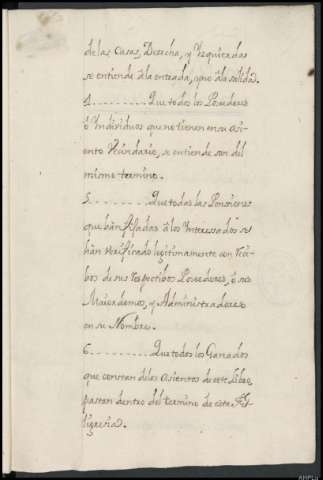 de las Casas, Derecha, y Yzquierdas
se entiende â la entrada, que â la salida.
4......... Que todos los Posehedores
ô Individuos que no tienen en su asi-
ento Vecindario, se entiende son del
mismo termino.
5......... Que todas las Pensiones
que hân fixadas â los Interesados se
hân verificado legitimamente con Reci-
bos de sus respectibos Posehedores, ô sus
Maiordomos, y Administradores
en su Nombre.
6......... Que todos los Ganados
que constan de los asientos de este Libro,
pastan dentro del termino de esta Fe-
ligresia.